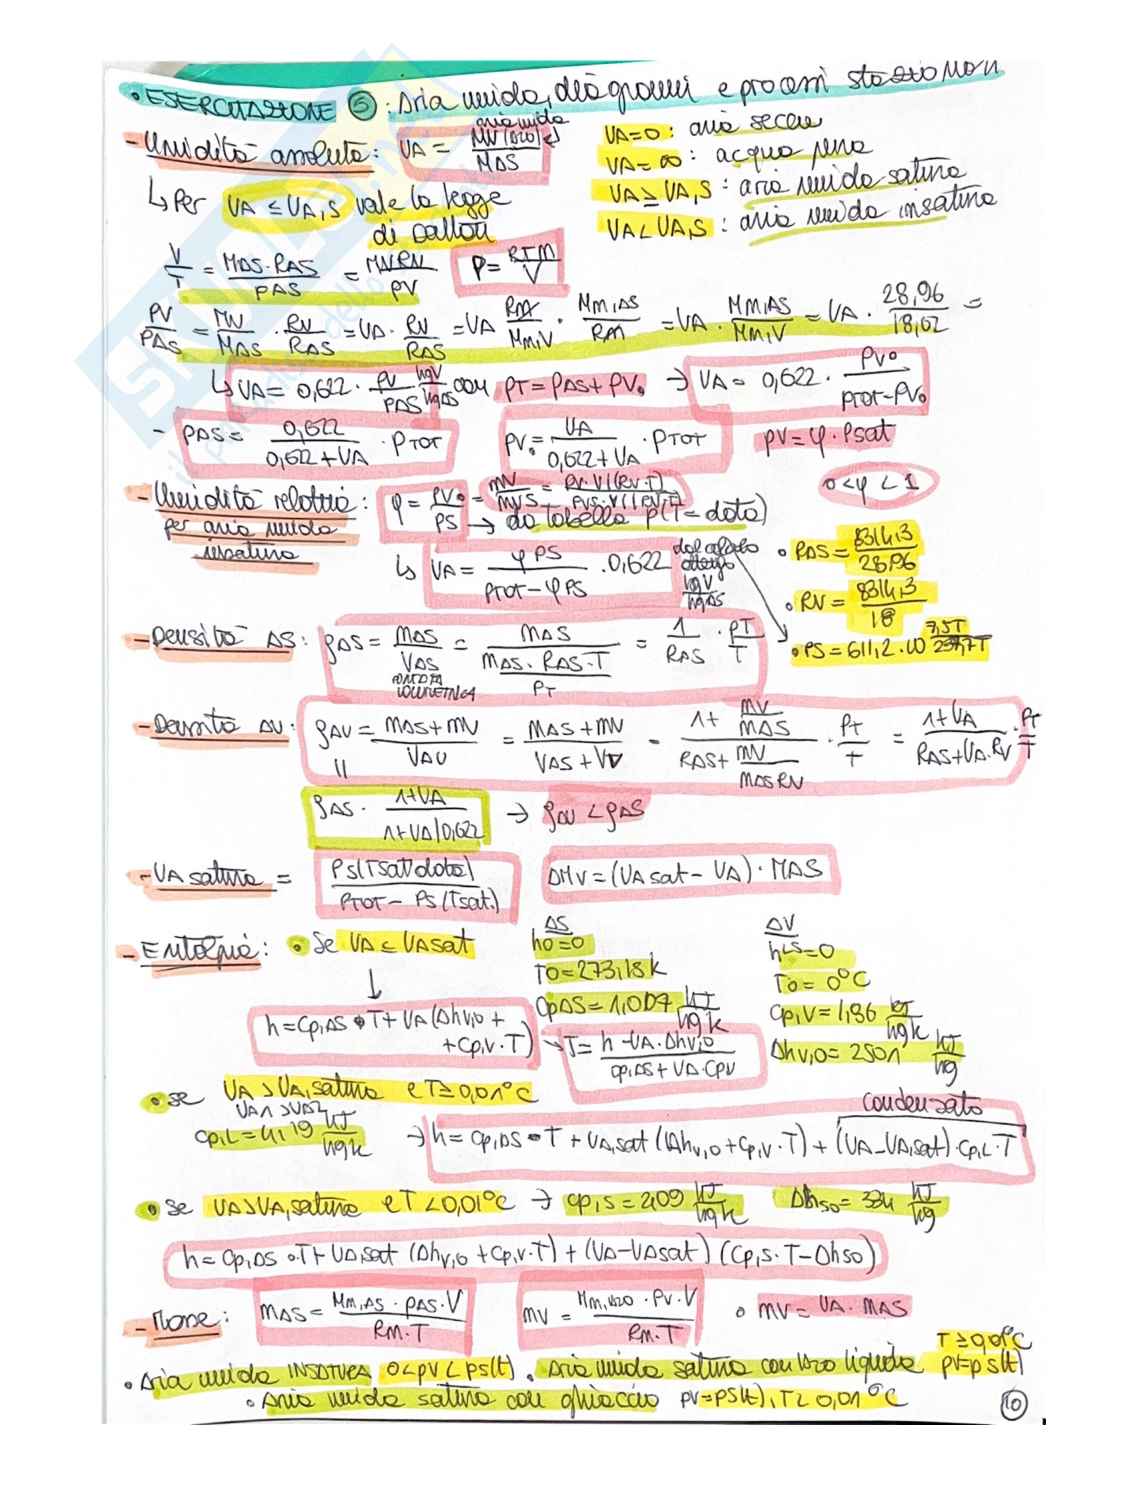 • ESERCITAZIONE 5 : Aria umida, diagrammi e processi stazionari
- Umidità assoluta: UA = MV (H2O) / MAS aria umida
UA=0 : aria secca
UA=∞ : acqua pura
UA≥UA,S : aria umida satura
UA<UA,S : aria umida insatura
↳ Per UA ≤ UA,S vale la legge
di Dalton
V/T = MAS·RAS / PAS = MV·RV / PV P = RTM / V
PV/PAS = MV/MAS · RV/RAS = UA · RV/RAS = UA RM/Mm,V · Mm,AS/RM = UA · Mm,AS/Mm,V = UA · 28,96/18,02 =
↳ UA = 0,622 · PV/PAS kgV/kgAS con PT = PAS + PV. → UA = 0,622 · PV. / PTOT-PV.
- PAS = 0,622 / 0,622+UA · PTOT PV. = UA / 0,622+UA · PTOT PV = φ · Psat
- Umidità relativa: φ = PV. / PS = MV/MVS = PV·V/(RV·T) / PVS·V/(RV·T) 0<φ<1
per aria umida → da tabella P(T=data)
insatura
↳ UA = φPS / PTOT-φPS · 0,622 kgV/kgAS
• RAS = 8314,3 / 28,96
• RV = 8314,3 / 18
- Densità AS: ρAS = MAS / VAS = MAS / MAS·RAS·T / PT = 1/RAS · PT/T
PORTATA
VOLUMETRICA
• PS = 611,2 · 10 7,5T / 237,7T
- Densità AU: ρAU = MAS+MV / VAU = MAS+MV / VAS+VV = 1+ MV/MAS / RAS+ MV/MAS RV · PT/T = 1+UA / RAS+UA·RV · PT/T
ρAS · 1+UA / 1+UA/0,622 → ρAU < ρAS
- UA satura = PS(Tsat data) / PTOT - PS(Tsat.) ΔMV = (UAsat - UA) · MAS
- Entalpia: • Se UA ≤ UAsat
AS
h0=0
T0=273,15K
CpAS=1,007 kJ/kgK
ΔV
hLS=0
T0=0°C
Cp,V=1,86 kJ/kgK
Δhv,0=2501 kJ/kg
h = Cp,AS • T + UA (Δhv,0 +
+ Cp,V · T) → T = h - UA·Δhv,0 / Cp,AS + UA·CpV
• Se UA > UA,satura e T ≥ 0,01°C
UA1 > UA2
Cp,L = 4,19 kJ/kgK
condensato
→ h = Cp,AS • T + UA,sat (Δhv,0 + Cp,V · T) + (UA-UA,sat) · Cp,L · T
• Se UA>UA,satura e T<0,01°C → Cp,S = 2,09 kJ/kgK Δhs0 = 334 kJ/kg
h = Cp,AS • T + UA,sat (Δhv,0 + Cp,V·T) + (UA-UAsat) (Cp,S·T-Δhs0)
- Masse: MAS = Mm,AS · PAS · V / RM·T MV = Mm,H2O · PV · V / RM·T • MV = UA · MAS
T ≥ 0,01°C
• Aria umida INSATURA 0<PV<PS(t) • Aria umida satura con H2O liquida PV=PS(t)
• Aria umida satura con ghiaccio PV=PS(t), T<0,01°C
10